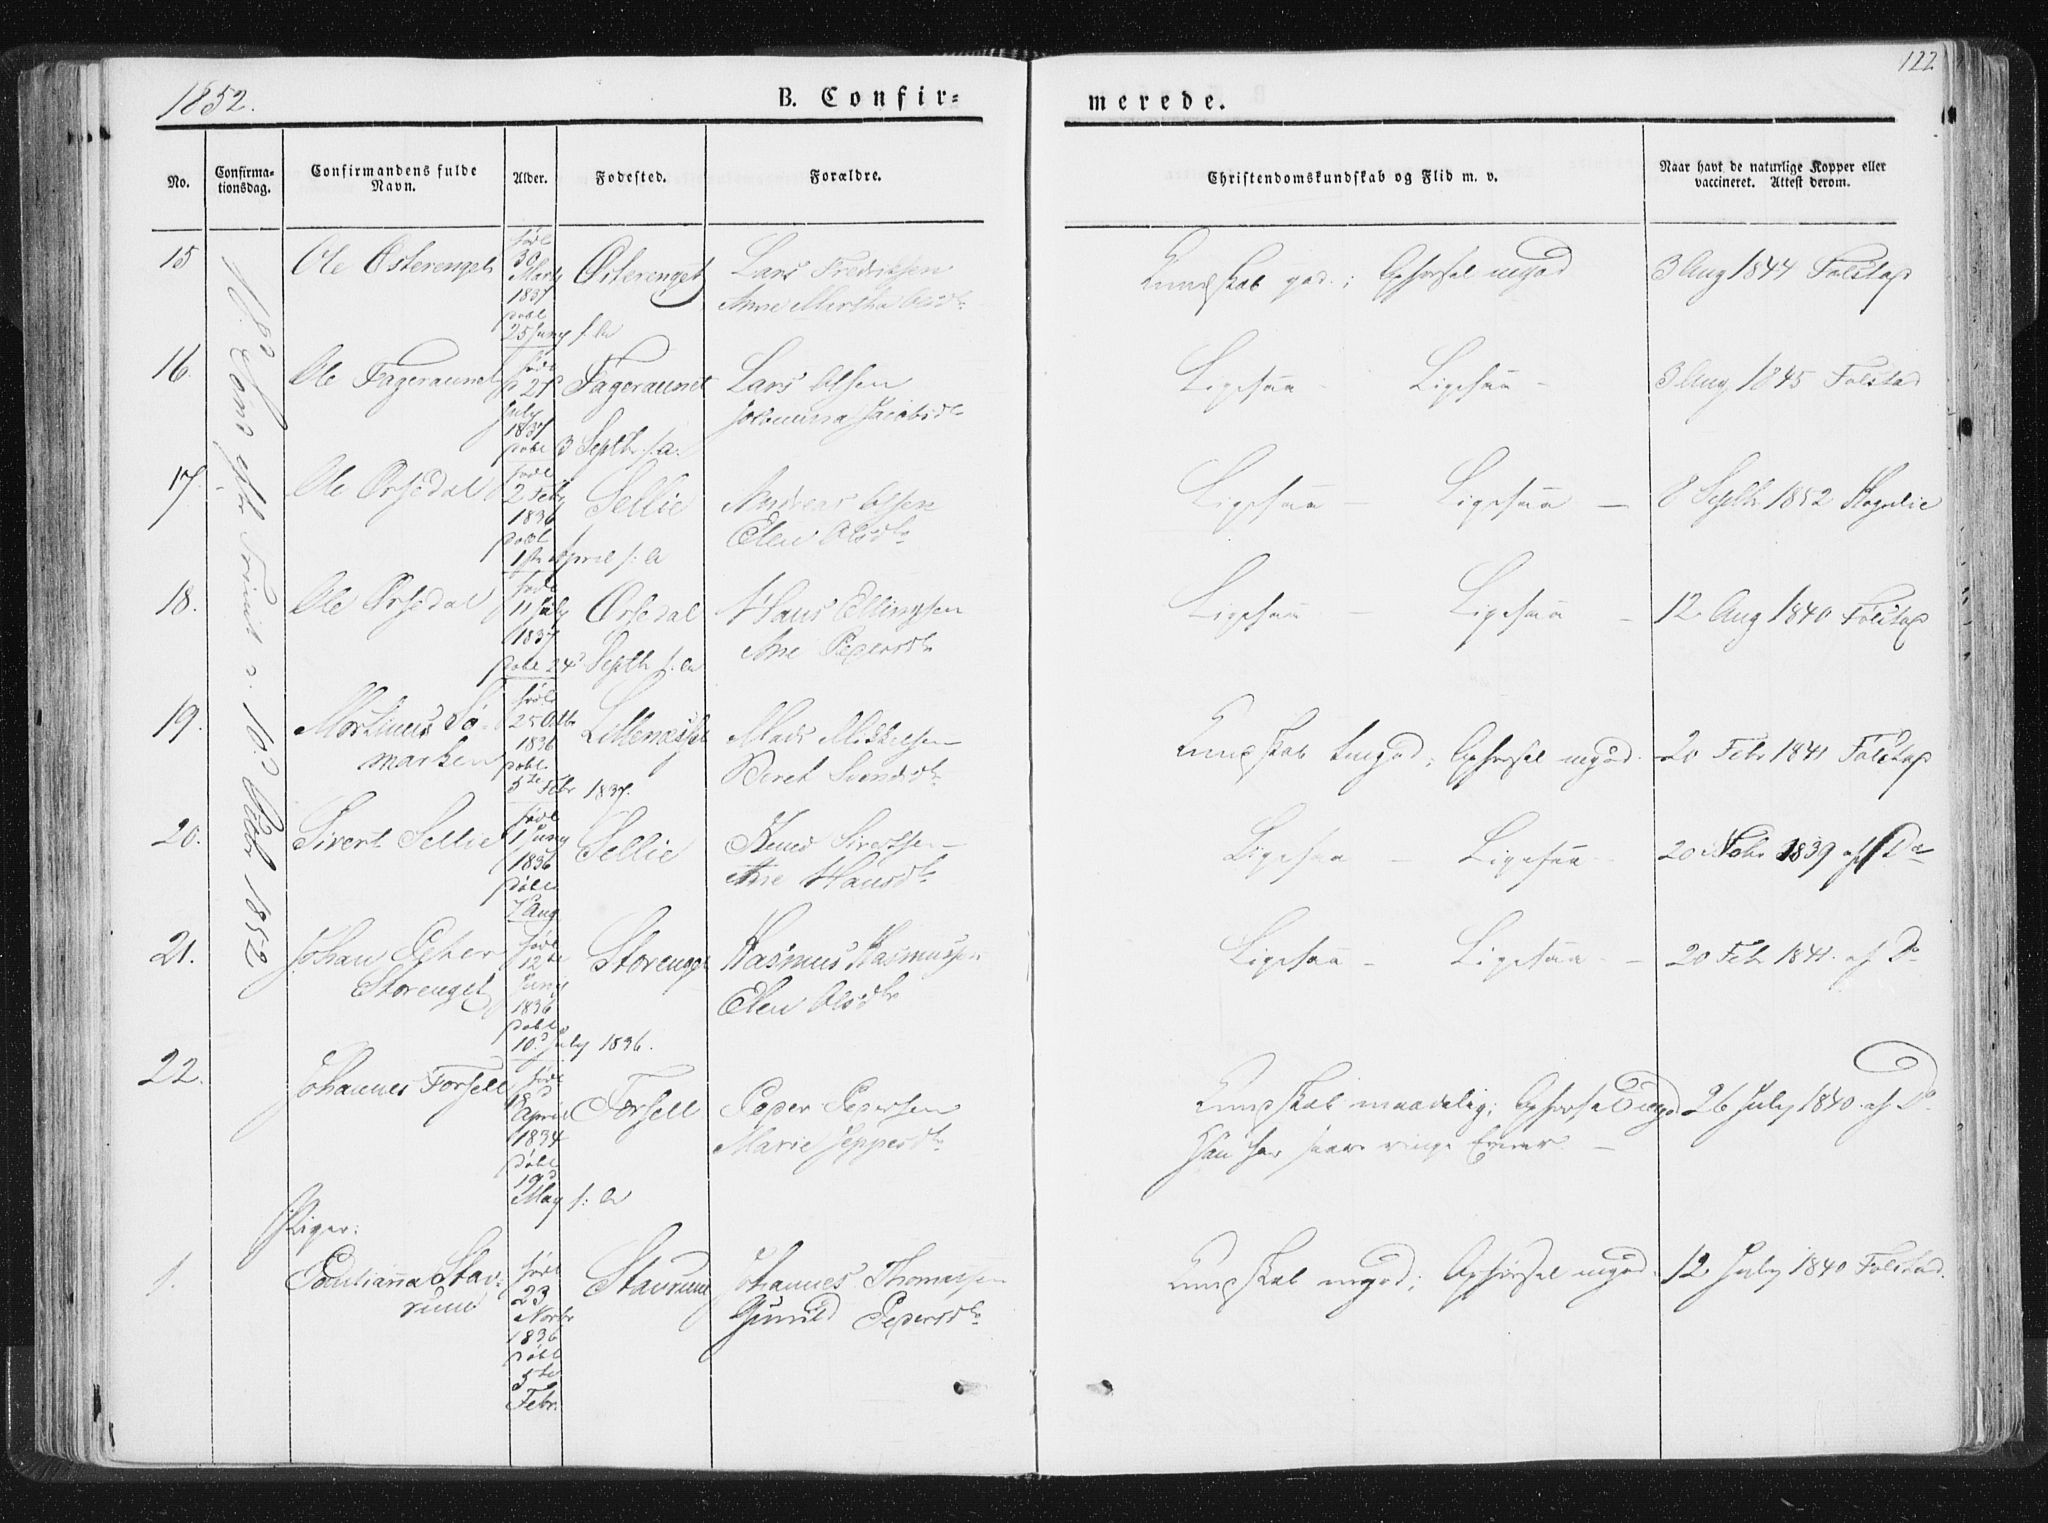 1852.
B. Confir-
merede.
122
No.
Confirma-
tionsdag.
Confirmandens fulde
Navn.
Alder.
Fødested.
Forældre.
Christendomskundskab og Flid m. v.
Naar havt de naturlige Kopper eller
vaccineret. Attest derom.
15
Ole Østerenget
født
30
Marts
1837
døbt
25 Juny s. a
Østerenget
Lars Fredriksen
Ane Martha Olsdtr
Kundskab god; Opførsel mgod
3 Aug 1844 Folstad
16.
Ole Fageraunet
født
d 27
July
1837
døbt 3 Septbr s. a.
Fageraunet
Lars Olsen
Jacobsdtr
Ligesaa - Ligesaa -
3 Aug 1845 Folstad
17.
Ole Ørsødal
født
2 Feb
1836
døbt
1ste April s. a
Sellie
Andreas Olsen
Elen Olsdtr
Ligesaa - Ligesaa -
8 Septbr 1852
18.
Ole Ørsødal
født
11 July
1837
døbt 24d Septbr s. a
Ørsødal
Hans Ellingsen
Ane Pedersdtr
Ligesaa - Ligesaa -
12 Aug 1840 Folstad
19.
Martinus Sø-
marken
født
25 Octbr
1836
døbt
5te Febr 1837.
Lillenesset
Mads Mikkelsen
Beret Svendsdtr
Kundskab tmgod; Opførsel mgod.
20 Febr 1841 Folstad
20.
Sivert Sellie
født
1 Juny
1836
døbt
7d Aug
Sellie
Sivertsen
Ane Hansdtr
Ligesaa - Ligesaa -
20 1839 af Do
21.
Johan Peter
Storenget
født
12te
Juny
1836
døbt
10d July 1836.
Storenget
Rasmus Rasmussen
Elen Olsdtr
Ligesaa - Ligesaa -
20 Feb. 1841. af Do
22.
Johannes Forsell
født
18d
April
1834
døbt
19d
May s. a
Forsell
Peder Pedersen
Marie Jeppesdtr
Kundskab maadelig; Opførsel mgod
Han har saare ringe Evner. -
26 July 1840. af Do
Piger:
1.
Stav-
rum
født
23
Novbr
1836
døbt
5te
Febr.
Stavrum
Johannes Thomassen
Gunild Pedersdtr
Kundskab mgod; Opførsel mgod.
12 July 1840 Folstad.
1852